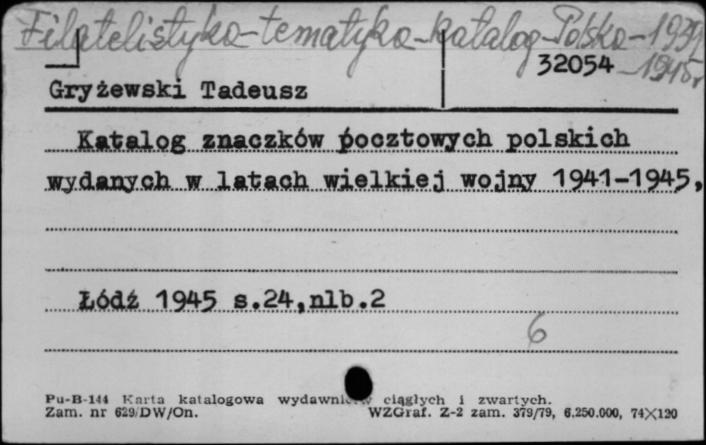 Filatelistyka-tematyka-katalog-Polska-1939
-1945r
32054
Gryżewski Tadeusz
Katalog znaczków pocztowych polskich
wydanych w latach wielkiej wojny 1941-1945,
Łódź 1945 s.24,nlb.2
6
Pu-B-144 Karta katalogowa wydawnictw ciągłych i zwartych.
Zam. nr 629/DW/On. WZGraf. Z-2 zam. 379/79, 6.250.000, 74×120